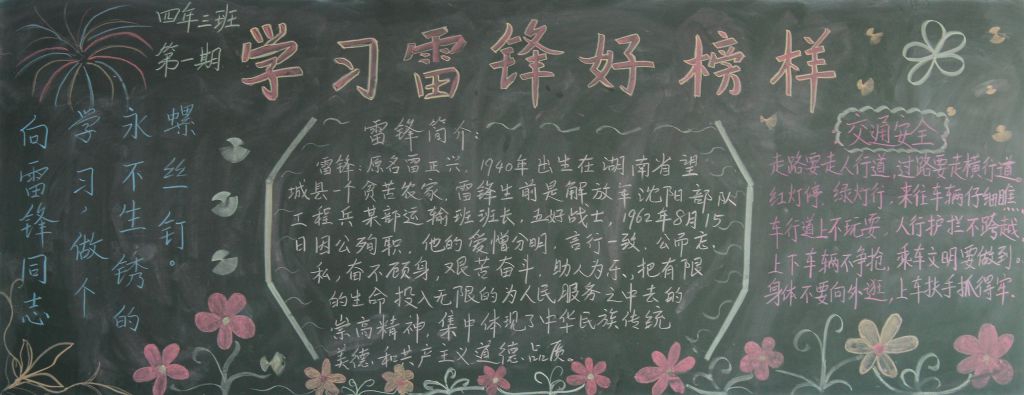 四年三班
第一期
学习雷锋好榜样
向雷锋同志
学习，做个
永不生锈的
螺丝钉。
雷锋简介：
雷锋：原名雷正兴，1940年出生在湖南省望
城县一个贫苦农家，雷锋生前是解放军沈阳部队
工程兵某部运输班班长，五好战士，1962年8月15
日因公殉职，他的爱憎分明，言行一致，公而忘
私，奋不顾身，艰苦奋斗，助人为乐，把有限
的生命投入无限的为人民服务之中去的
崇高精神，集中体现了中华民族传统
美德和共产主义道德品质。
交通安全
走路要走人行道，过路要走横行道。
红灯停，绿灯行，来往车辆仔细瞧。
车行道上不玩耍，人行护拦不跨越，
上下车辆不争抢，乘车文明要做到。
身体不要向外逛，上车扶手抓得牢。